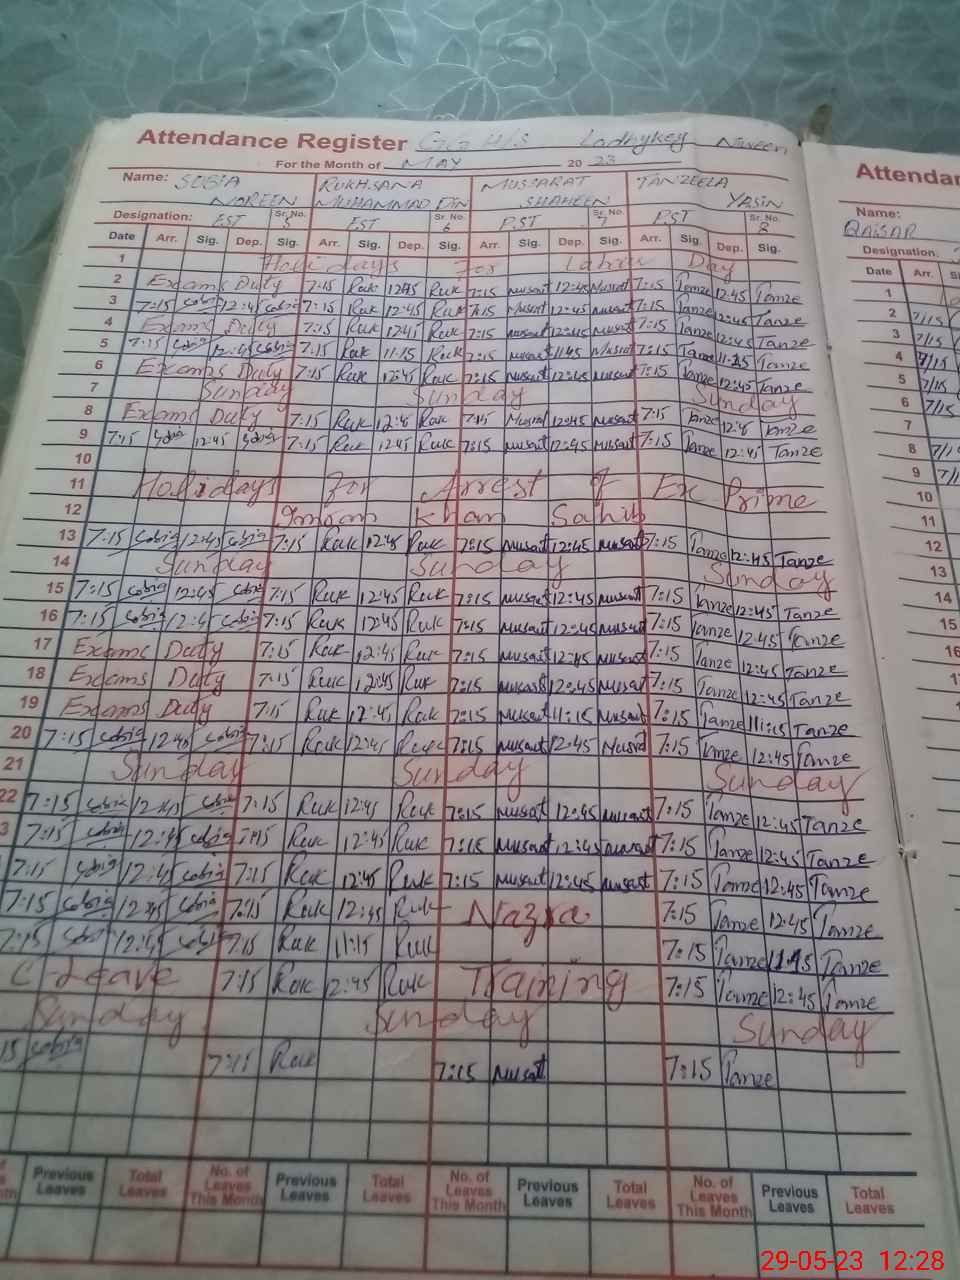 Attendance Register GGHS Lodhykey Noreen
For the Month of MAY 20 23
Name: SOBIA NOREEN RUKHSANA MUHAMMAD DIN MUSSARAT SHAHEEN TANZEELA YASIN
Designation: EST Sr. No. 5 EST Sr. No. 6 PST Sr. No. 7 PST Sr. No. 8
Date Arr. Sig. Dep. Sig. Arr. Sig. Dep. Sig. Arr. Sig. Dep. Sig. Arr. Sig. Dep. Sig.
1 Holidays For Day
2 Exams Duty 7:15 Ruk 12:45 Ruk 7:15 Musart 12:45 Musart 7:15 Tanze 12:45 Tanze
3 7:15 Sobia 12:45 Sobia 7:15 Ruk 12:45 Ruk 7:15 Musart 12:45 Musart 7:15 Tanze 12:45 Tanze
4 Exams Duty 7:15 Ruk 12:45 Ruk 7:15 Musart 12:45 Musart 7:15 Tanze 12:45 Tanze
5 7:15 Sobia 12:45 Sobia 7:15 Ruk 11:15 Ruk 7:15 Musart 11:45 Musart 7:15 Tanze 11:15 Tanze
6 Exams Duty 7:15 Ruk 12:45 Ruk 7:15 Musart 12:45 Musart 7:15 Tanze 12:45 Tanze
7 Sunday Sunday Sunday
8 Exams Duty 7:15 Ruk 12:45 Ruk 7:15 Musart 12:45 Musart 7:15 Tanze Tanze
9 7:15 Sobia 12:45 Sobia 7:15 Ruk 12:45 Ruk 7:15 Musart 12:45 Musart 7:15 Tanze 12:45 Tanze
10
11 Holidays For Arrest of Ex Prime
12 Imran Khan Sahib
13 7:15 Sobia 12:45 Sobia 7:15 Ruk 12:45 Ruk 7:15 Musart 12:45 Musart 7:15 Tanze 12:45 Tanze
14 Sunday Sunday Sunday
15 7:15 Sobia 12:45 Sobia 7:15 Ruk 12:45 Ruk 7:15 Musart 12:45 Musart 7:15 Tanze 12:45 Tanze
16 7:15 Sobia 12:45 Sobia 7:15 Ruk 12:45 Ruk 7:15 Musart 12:45 Musart 7:15 Tanze 12:45 Tanze
17 Exams Duty 7:15 Ruk 12:45 Ruk 7:15 Musart 12:45 Musart 7:15 Tanze 12:45 Tanze
18 Exams Duty 7:15 Ruk 12:45 Ruk 7:15 Musart 12:45 Musart 7:15 Tanze 12:45 Tanze
19 Exams Duty 7:15 Ruk 12:45 Ruk 7:15 Musart 11:15 Musart 7:15 Tanze 11:15 Tanze
20 7:15 Sobia 12:45 Sobia 7:15 Ruk 12:45 Ruk 7:15 Musart 12:45 Musart 7:15 Tanze 12:45 Tanze
21 Sunday Sunday Sunday
22 7:15 Sobia 12:45 Sobia 7:15 Ruk 12:45 Ruk 7:15 Musart 12:45 Musart 7:15 Tanze 12:45 Tanze
3 7:15 Sobia 12:45 Sobia 7:15 Ruk 12:45 Ruk 7:15 Musart 12:45 Musart 7:15 Tanze 12:45 Tanze
7:15 Sobia 12:45 Sobia 7:15 Ruk 12:45 Ruk 7:15 Musart 12:45 Musart 7:15 Tanze 12:45 Tanze
7:15 Sobia 12:45 Sobia 7:15 Ruk 12:45 Ruk Nazra 7:15 Tanze 12:45 Tanze
7:15 Sobia 12:45 Sobia 7:15 Ruk 11:15 Ruk 7:15 Tanze Tanze
C-Leave 7:15 Ruk 12:45 Ruk Training 7:15 Tanze 12:45 Tanze
Sunday Sunday Sunday
15 Sobia 7:15 Ruk 7:15 Musart 7:15 Tanze
Previous Leaves Total Leaves No. of Leaves This Month Previous Leaves Total Leaves No. of Leaves This Month Previous Leaves Total Leaves No. of Leaves This Month Previous Leaves Total Leaves
Attenda
Name:
QAISAR
Designation.
Date Arr.
1
2 7/15
3 7/15
4 7/15
5 7/15
6 7/15
7
8 7/1
9 7/1
10
11
12
13
14
15
16
29-05-23 12:28